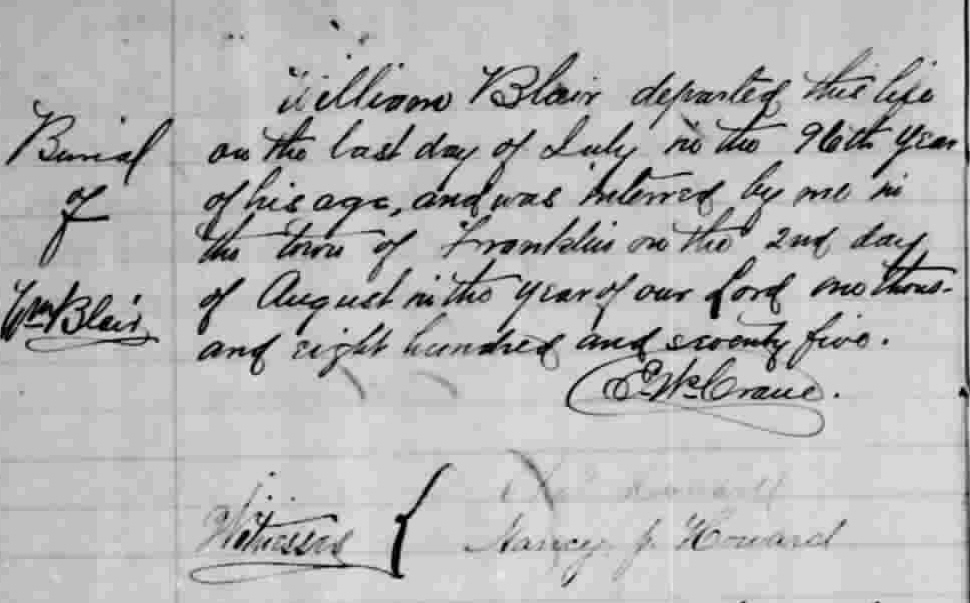 Burial
of
Wm Blair
William Blair departed this life
on the last day of July in the 96th year
of his age, and was interred by me in
the town of Franklin on the 2nd day
of August in the year of our Lord one thous-
and eight hundred and seventy five.
Witnesses
Nancy J. Howard